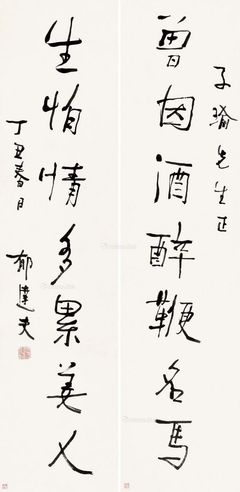 子瑜先生正
曾因酒醉鞭名马
生怕情多累美人
丁丑春日
郁达夫